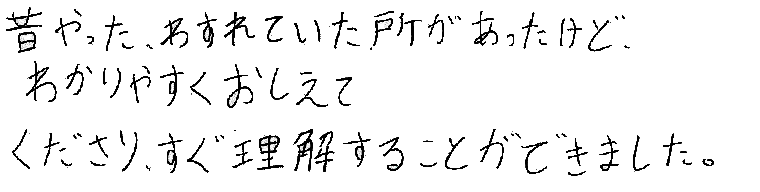 昔やった、わすれていた所があったけど、
わかりやすくおしえて
くださり、すぐ理解することができました。